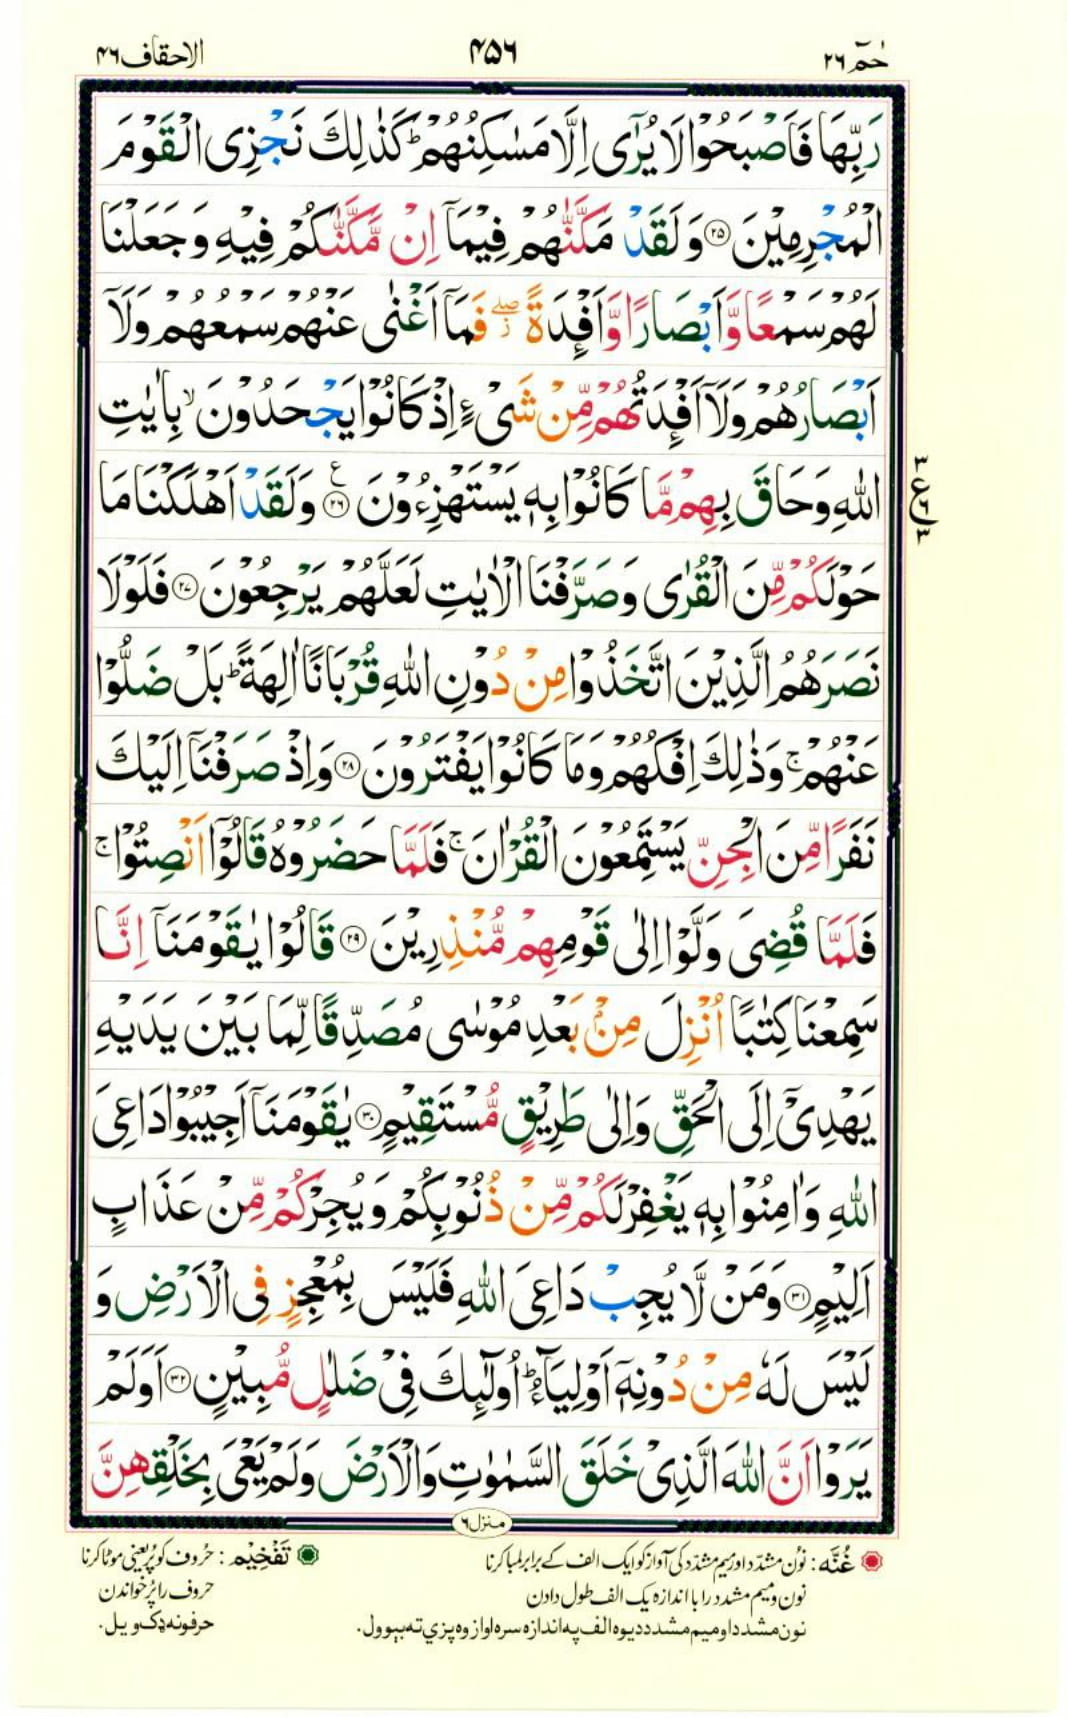 حٰمٓ ۲۶
۴۵۶
الاحقاف ۴۶
رَبِّهَا فَاَصْبَحُوْا لَا يُرٰۤى اِلَّا مَسٰكِنُهُمْ ؕ كَذٰلِكَ نَجْزِى الْقَوْمَ
الْمُجْرِمِيْنَ ﴿۲۵﴾ وَلَقَدْ مَكَّنّٰهُمْ فِيْمَاۤ اِنْ مَّكَّنّٰكُمْ فِيْهِ وَجَعَلْنَا
لَهُمْ سَمْعًا وَّاَبْصَارًا وَّاَفْـِٕدَةً ۖ٘ فَمَاۤ اَغْنٰى عَنْهُمْ سَمْعُهُمْ وَلَاۤ
اَبْصَارُهُمْ وَلَاۤ اَفْـِٕدَتُهُمْ مِّنْ شَىْءٍ اِذْ كَانُوْا يَجْحَدُوْنَ ۙ بِاٰيٰتِ
اللّٰهِ وَحَاقَ بِهِمْ مَّا كَانُوْا بِهٖ يَسْتَهْزِءُوْنَ ﴿۲۶﴾ ع وَلَقَدْ اَهْلَكْنَا مَا
۳ ع ۶ ۳
حَوْلَكُمْ مِّنَ الْقُرٰى وَصَرَّفْنَا الْاٰيٰتِ لَعَلَّهُمْ يَرْجِعُوْنَ ﴿۲۷﴾ فَلَوْلَا
نَصَرَهُمُ الَّذِيْنَ اتَّخَذُوْا مِنْ دُوْنِ اللّٰهِ قُرْبَانًا اٰلِهَةً ؕ بَلْ ضَلُّوْا
عَنْهُمْ ۚ وَذٰلِكَ اِفْكُهُمْ وَمَا كَانُوْا يَفْتَرُوْنَ ﴿۲۸﴾ وَاِذْ صَرَفْنَاۤ اِلَيْكَ
نَفَرًا مِّنَ الْجِنِّ يَسْتَمِعُوْنَ الْقُرْاٰنَ ۚ فَلَمَّا حَضَرُوْهُ قَالُوْۤا اَنْصِتُوْا ۚ
فَلَمَّا قُضِىَ وَلَّوْا اِلٰى قَوْمِهِمْ مُّنْذِرِيْنَ ﴿۲۹﴾ قَالُوْا يٰقَوْمَنَاۤ اِنَّا
سَمِعْنَا كِتٰبًا اُنْزِلَ مِنْۢ بَعْدِ مُوْسٰى مُصَدِّقًا لِّمَا بَيْنَ يَدَيْهِ
يَهْدِىْۤ اِلَى الْحَقِّ وَاِلٰى طَرِيْقٍ مُّسْتَقِيْمٍ ﴿۳۰﴾ يٰقَوْمَنَاۤ اَجِيْبُوْا دَاعِىَ
اللّٰهِ وَاٰمِنُوْا بِهٖ يَغْفِرْ لَكُمْ مِّنْ ذُنُوْبِكُمْ وَيُجِرْكُمْ مِّنْ عَذَابٍ
اَلِيْمٍ ﴿۳۱﴾ وَمَنْ لَّا يُجِبْ دَاعِىَ اللّٰهِ فَلَيْسَ بِمُعْجِزٍ فِى الْاَرْضِ وَ
لَيْسَ لَهٗ مِنْ دُوْنِهٖۤ اَوْلِيَآءُ ؕ اُولٰٓئِكَ فِىْ ضَلٰلٍ مُّبِيْنٍ ﴿۳۲﴾ اَوَلَمْ
يَرَوْا اَنَّ اللّٰهَ الَّذِىْ خَلَقَ السَّمٰوٰتِ وَالْاَرْضَ وَلَمْ يَعْىَ بِخَلْقِهِنَّ
منزل ۶
غُنَّه : نون مشدّد اور میم مشدّد کی آواز کو ایک الف کے برابر لمبا کرنا
نون و میم مشدد را با اندازه یک الف طول دادن
نون مشدد او میم مشدد د یوه الف په اندازه سره اواز وه پزې ته بیوول.
تَفْخِیْم : حُروف کو پُر یعنی موٹا کرنا
حروف را پُر خواندن
حرفونه ډک ویل.